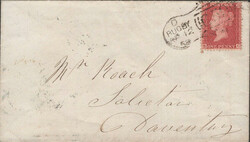 RUGBY
ONE PENNY
Mr Roach
Solicitor
Daventry